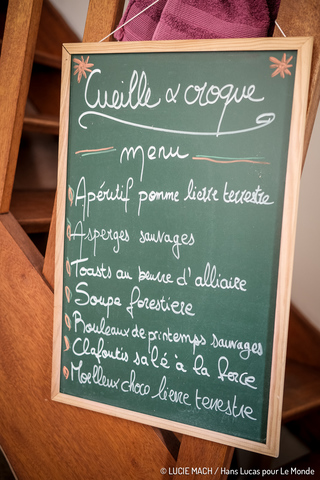 Cueille & croque
menu
Apéritif pomme lierre terrestre
Asperges sauvages
Toasts au beurre d'alliaire
Soupe forestière
Rouleaux de printemps sauvages
Clafoutis salé à la berce
Moelleux choco lierre terrestre
© LUCIE MACH / Hans Lucas pour Le Monde